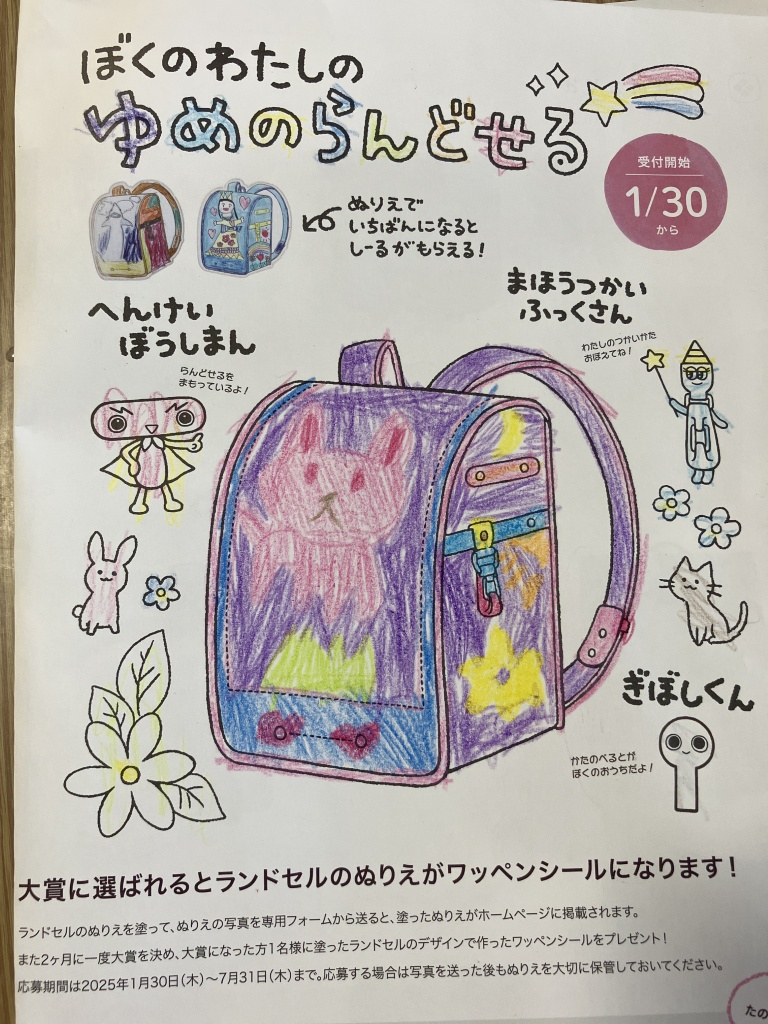 ぼくのわたしの
ゆめのらんどせる
受付開始
1/30
から
ぬりえで
いちばんになると
しーるがもらえる!
へんけい
ぼうしまん
らんどせるを
まもっているよ!
まほうつかい
ふっくさん
わたしのつかいかた
おぼえてね!
ぎぼしくん
かたのべるとが
ぼくのおうちだよ!
大賞に選ばれるとランドセルのぬりえがワッペンシールになります!
ランドセルのぬりえを塗って、ぬりえの写真を専用フォームから送ると、塗ったぬりえがホームページに掲載されます。
また2ヶ月に一度大賞を決め、大賞になった方1名様に塗ったランドセルのデザインで作ったワッペンシールをプレゼント!
応募期間は2025年1月30日(木)〜7月31日(木)まで。応募する場合は写真を送った後もぬりえを大切に保管しておいてください。
たの